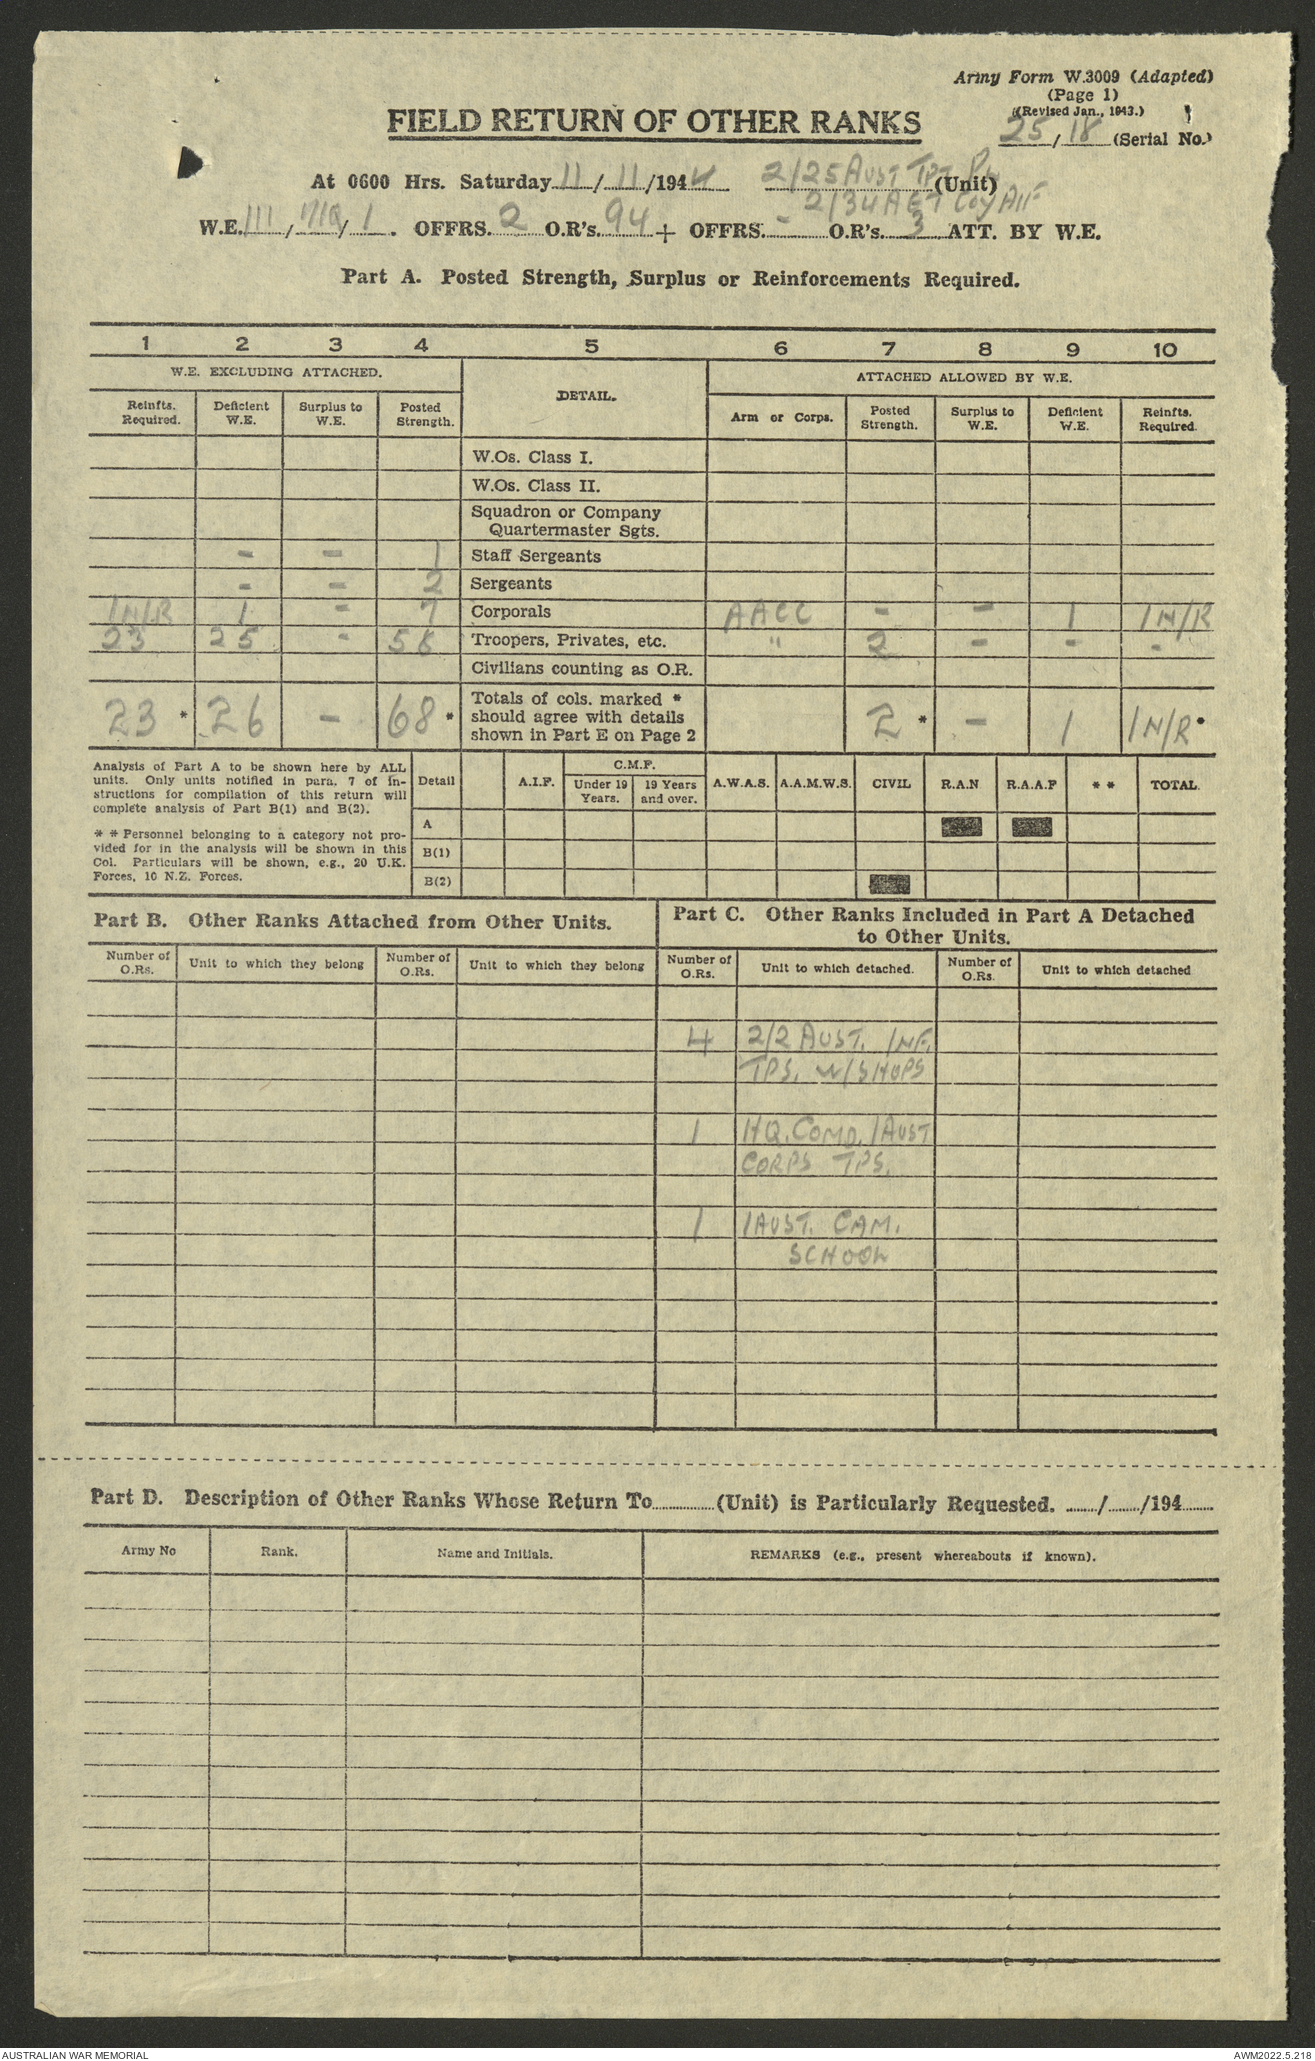 Army Form W.3009 (Adapted)
(Page 1)
(Revised Jan., 1943.)
FIELD RETURN OF OTHER RANKS
25/18 (Serial No.)
At 0600 Hrs. Saturday 11/11/1944 2/25 AUST TPT PL (Unit)
2/34 A G T Coy AIF
W.E. III/ /1. OFFRS. 2 O.R's. 94 + OFFRS. - O.R's. 3 ATT. BY W.E.
Part A. Posted Strength, Surplus or Reinforcements Required.
1 2 3 4 5 6 7 8 9 10
W.E. EXCLUDING ATTACHED. DETAIL. ATTACHED ALLOWED BY W.E.
Reinfts. Required. Deficient W.E. Surplus to W.E. Posted Strength. Arm or Corps. Posted Strength. Surplus to W.E. Deficient W.E. Reinfts. Required.
W.Os. Class I.
W.Os. Class II.
Squadron or Company
Quartermaster Sgts.
- - 1 Staff Sergeants
- - 2 Sergeants
1N/R 1 - 7 Corporals AACC - - 1 1N/R
23 25 - 58 Troopers, Privates, etc. " 2 - - -
Civilians counting as O.R.
23 * 26 - 68 * Totals of cols. marked * should agree with details shown in Part E on Page 2 2 * - 1 1N/R *
Analysis of Part A to be shown here by ALL
units. Only units notified in para. 7 of in-
structions for compilation of this return will
complete analysis of Part B(1) and B(2).
* * Personnel belonging to a category not pro-
vided for in the analysis will be shown in this
Col. Particulars will be shown, e.g., 20 U.K.
Forces, 10 N.Z. Forces.
Detail A.I.F. C.M.F. Under 19 Years. 19 Years and over. A.W.A.S. A.A.M.W.S. CIVIL R.A.N R.A.A.F * * TOTAL.
A
B(1)
B(2)
Part B. Other Ranks Attached from Other Units.
Number of O.Rs. Unit to which they belong Number of O.Rs. Unit to which they belong
Part C. Other Ranks Included in Part A Detached
to Other Units.
Number of O.Rs. Unit to which detached. Number of O.Rs. Unit to which detached
4 2/2 AUST. INF.
TPS. W/SHOPS
1 HQ. COMD. 1 AUST
CORPS TPS.
1 1 AUST. CAM.
SCHOOL
Part D. Description of Other Ranks Whose Return To (Unit) is Particularly Requested. / /194
Army No Rank. Name and Initials. REMARKS (e.g., present whereabouts if known).
AUSTRALIAN WAR MEMORIAL AWM2022.5.218